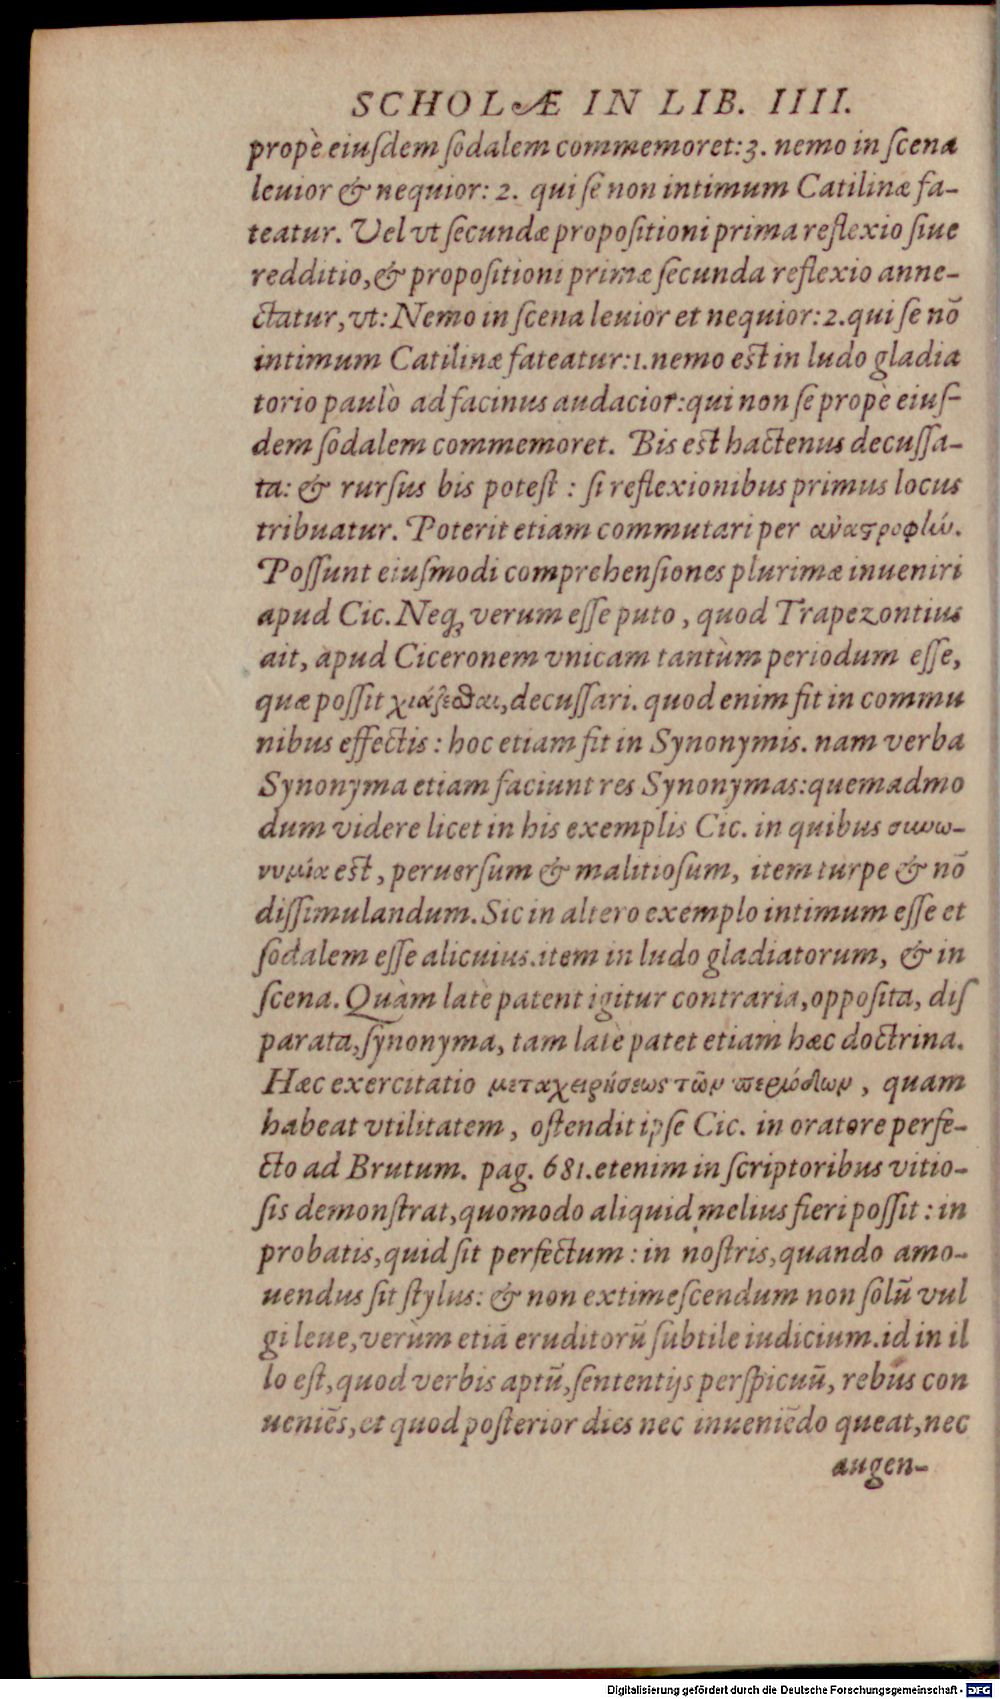 SCHOLÆ IN LIB. IIII.
propè eiuſdem ſodalem commemoret: 3. nemo in ſcena
leuior & nequior: 2. qui ſe non intimum Catilinæ fa-
teatur. Vel vt ſecundæ propoſitioni prima reflexio ſiue
redditio, & propoſitioni primæ ſecunda reflexio anne-
ctatur, vt: Nemo in ſcena leuior et nequior: 2. qui ſe nō
intimum Catilinæ fateatur: 1. nemo eſt in ludo gladia
torio paulò ad facinus audacior: qui non ſe propè eiuſ-
dem ſodalem commemoret. Bis eſt hactenus decuſſa-
ta: & rurſus bis poteſt : ſi reflexionibus primus locus
tribuatur. Poterit etiam commutari per ἀναστροφὴν.
Poſſunt eiuſmodi comprehenſiones plurimæ inueniri
apud Cic. Neq; verum eſſe puto, quod Trapezontius
ait, apud Ciceronem vnicam tantùm periodum eſſe,
quæ poſſit χιάζεσθαι, decuſſari. quod enim fit in commu
nibus effectis : hoc etiam fit in Synonymis. nam verba
Synonyma etiam faciunt res Synonymas: quemadmo
dum videre licet in his exemplis Cic. in quibus συνω-
νυμία eſt, peruerſum & malitioſum, item turpe & nō
diſſimulandum. Sic in altero exemplo intimum eſſe et
ſodalem eſſe alicuius. item in ludo gladiatorum, & in
ſcena. Quàm latè patent igitur contraria, oppoſita, diſ
parata, ſynonyma, tam latè patet etiam hæc doctrina.
Hæc exercitatio μεταχειρήσεως τῶν περιόδων, quam
habeat vtilitatem, oſtendit ipſe Cic. in oratore perfe-
cto ad Brutum. pag. 681. etenim in ſcriptoribus vitio-
ſis demonſtrat, quomodo aliquid melius fieri poſſit : in
probatis, quid ſit perfectum : in noſtris, quando amo-
uendus ſit ſtylus: & non extimeſcendum non ſolū vul
gi leue, verùm etiā eruditorū ſubtile iudicium. id in il
lo eſt, quod verbis aptū, ſententijs perſpicuū, rebus con
ueniēs, et quod poſterior dies nec inueniēdo queat, nec
augen-
Digitalisierung gefördert durch die Deutsche Forschungsgemeinschaft - DFG